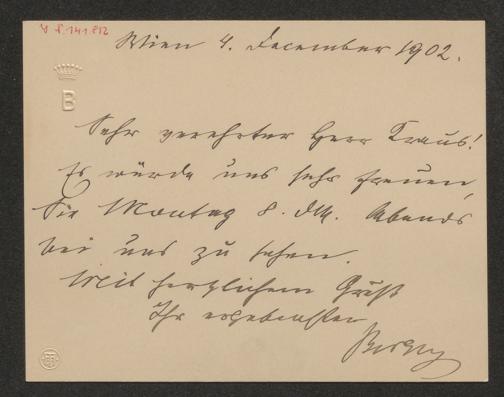 Wien 4. December 1902.
B
Sehr verehrter Herr Kraus!
Es würde uns sehr freuen,
Sie Montag 8. dM. Abends
bei uns zu sehen.
Mit herzlichem Gruß
Ihr ergebenster